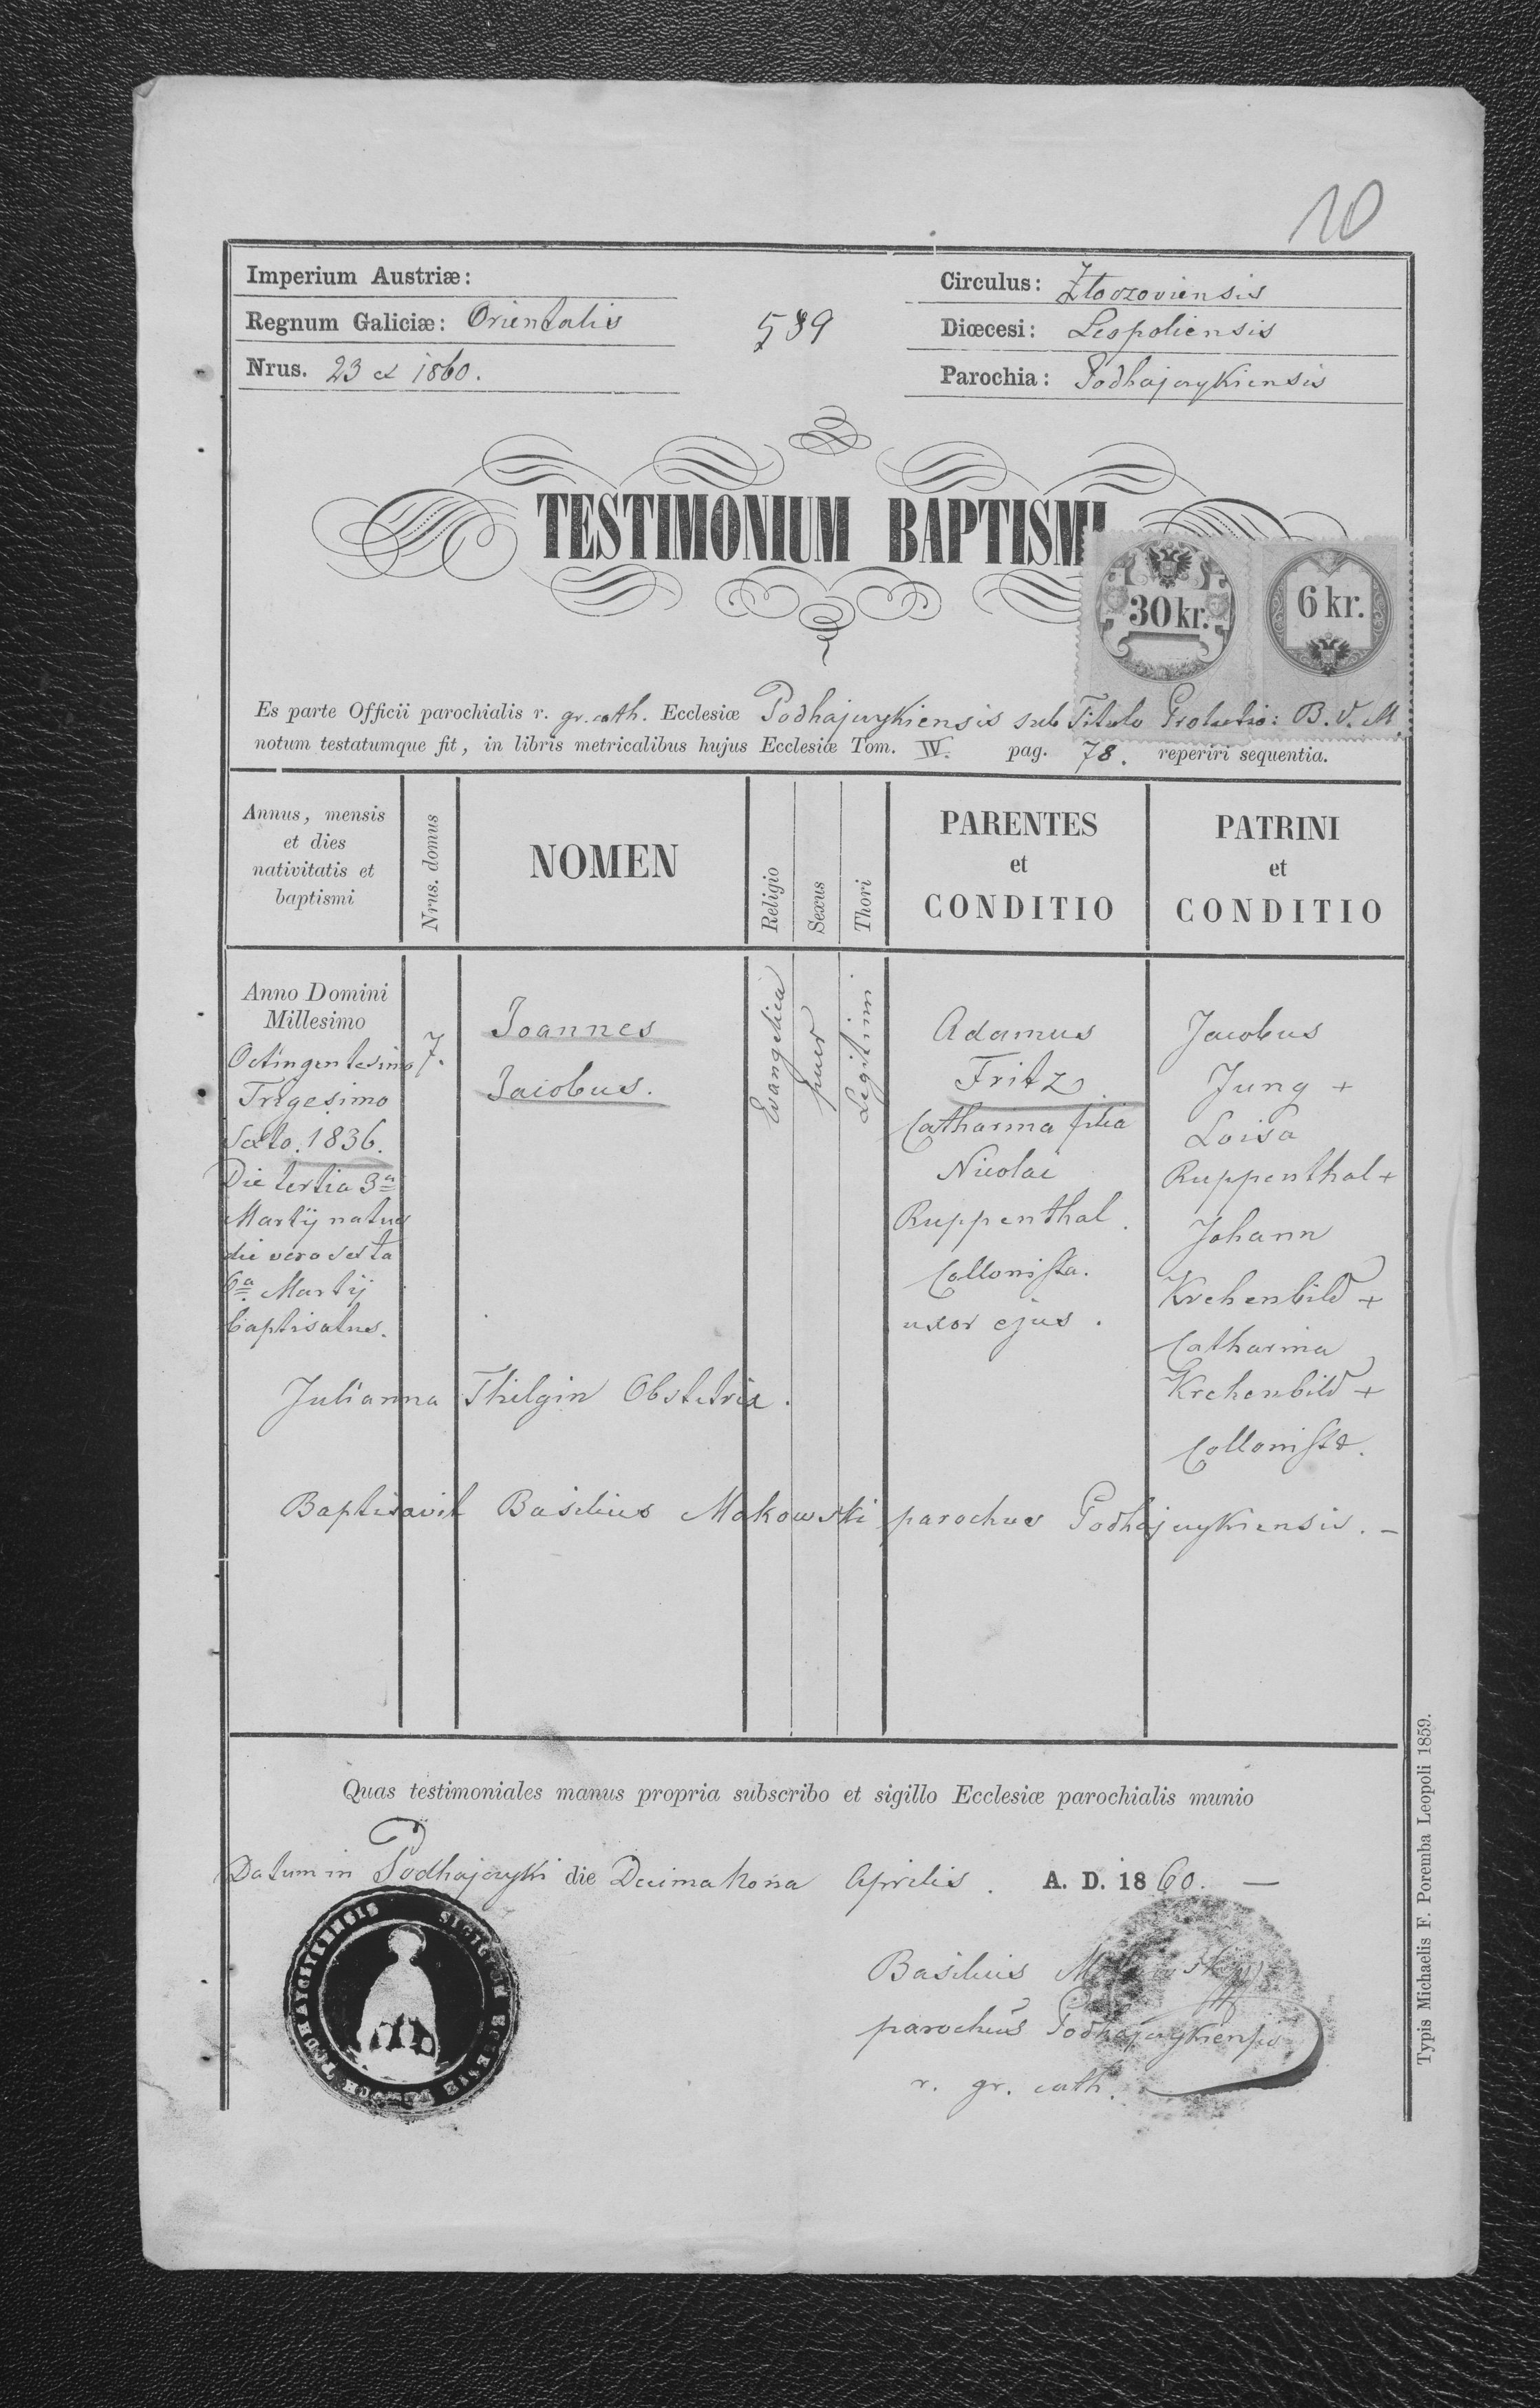 10
Imperium Austriæ:
Regnum Galiciæ: Orientalis
Nrus. 23 ex 1860.
539
Circulus: Złoczoviensis
Diœcesi: Leopoliensis
Parochia: Podhajczykiensis
TESTIMONIUM BAPTISMI
30 kr.
6 kr.
Es parte Officii parochialis r. gr. cath. Ecclesiæ Podhajczykiensis sub Titulo Protectio: B. V. M.
notum testatumque fit, in libris metricalibus hujus Ecclesiæ Tom. IV. pag. 78. reperiri sequentia.
Annus, mensis
et dies
nativitatis et
baptismi
Nrus. domus
NOMEN
Religio
Sexus
Thori
PARENTES
et
CONDITIO
PATRINI
et
CONDITIO
Anno Domini
Millesimo
Octingentesimo
Trigesimo
Sexto. 1836.
Die tertia 3a
Martij natus
die vero sexta
6a Martij
baptisatus.
7.
Joannes
Jacobus.
Evangelica
puer
Legitimi.
Adamus
Fritz
Catharina filia
Nicolai
Ruppenthal.
Collonista.
uxor ejus.
Jacobus
Jung +
Loisa
Ruppenthal +
Johann
Krehenbild +
Catharina
Krehenbild +
Collonistæ.
Julianna Thilgin Obstetrix.
Baptisavit Basilius Makowski parochus Podhajczykiensis. –
Quas testimoniales manus propria subscribo et sigillo Ecclesiæ parochialis munio
Datum in Podhajczyki die Decima Nona Aprilis. A. D. 1860. —
Basilius Makowski
parochus Podhajczykiensis
r. gr. cath.
Typis Michaelis F. Poremba Leopoli 1859.